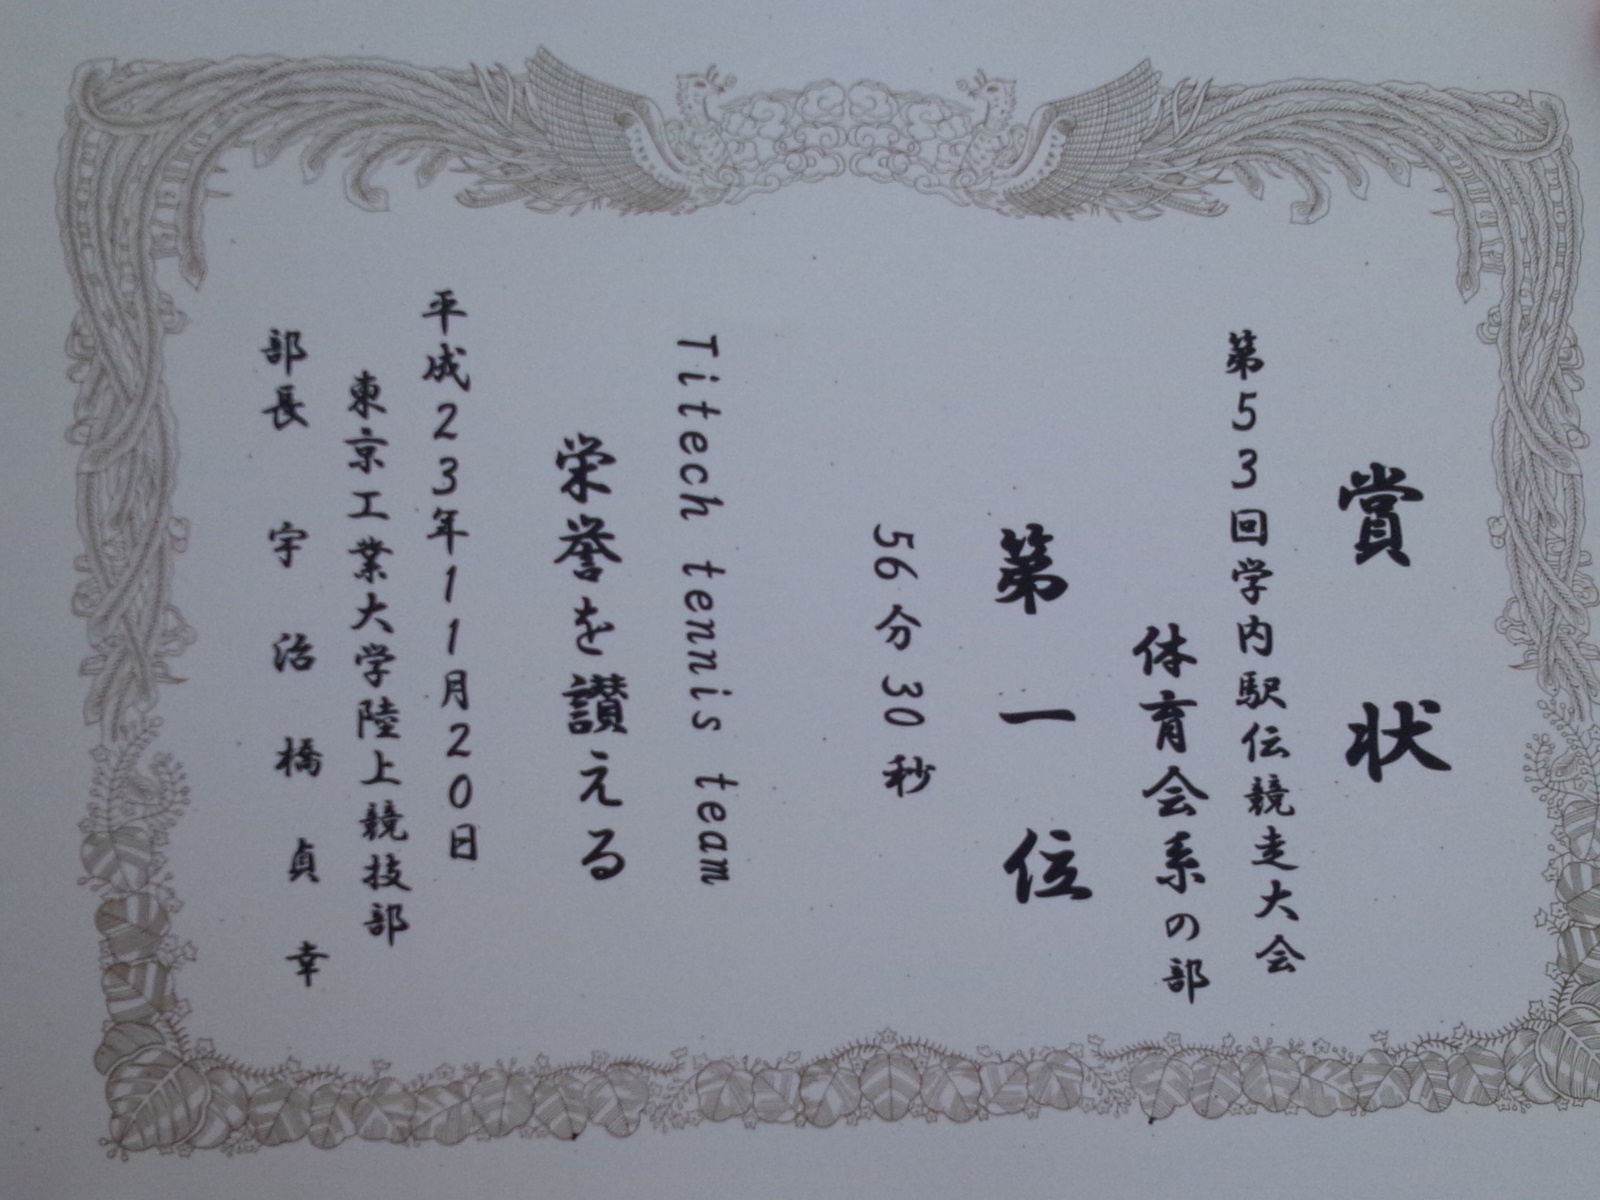 賞状
第53回学内駅伝競走大会
体育会系の部
第一位
56分30秒
Titech tennis team
栄誉を讃える
平成23年11月20日
東京工業大学陸上競技部
部長 宇治橋貞幸